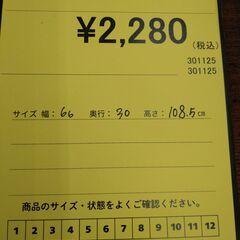 ¥2,280
(税込)
301125
301125
サイズ 幅: 66 奥行: 30 高さ: 108.5cm
商品のサイズ・状態をよくご確認ください。
1 2 3 4 5 6 7 8 9 10 11 12